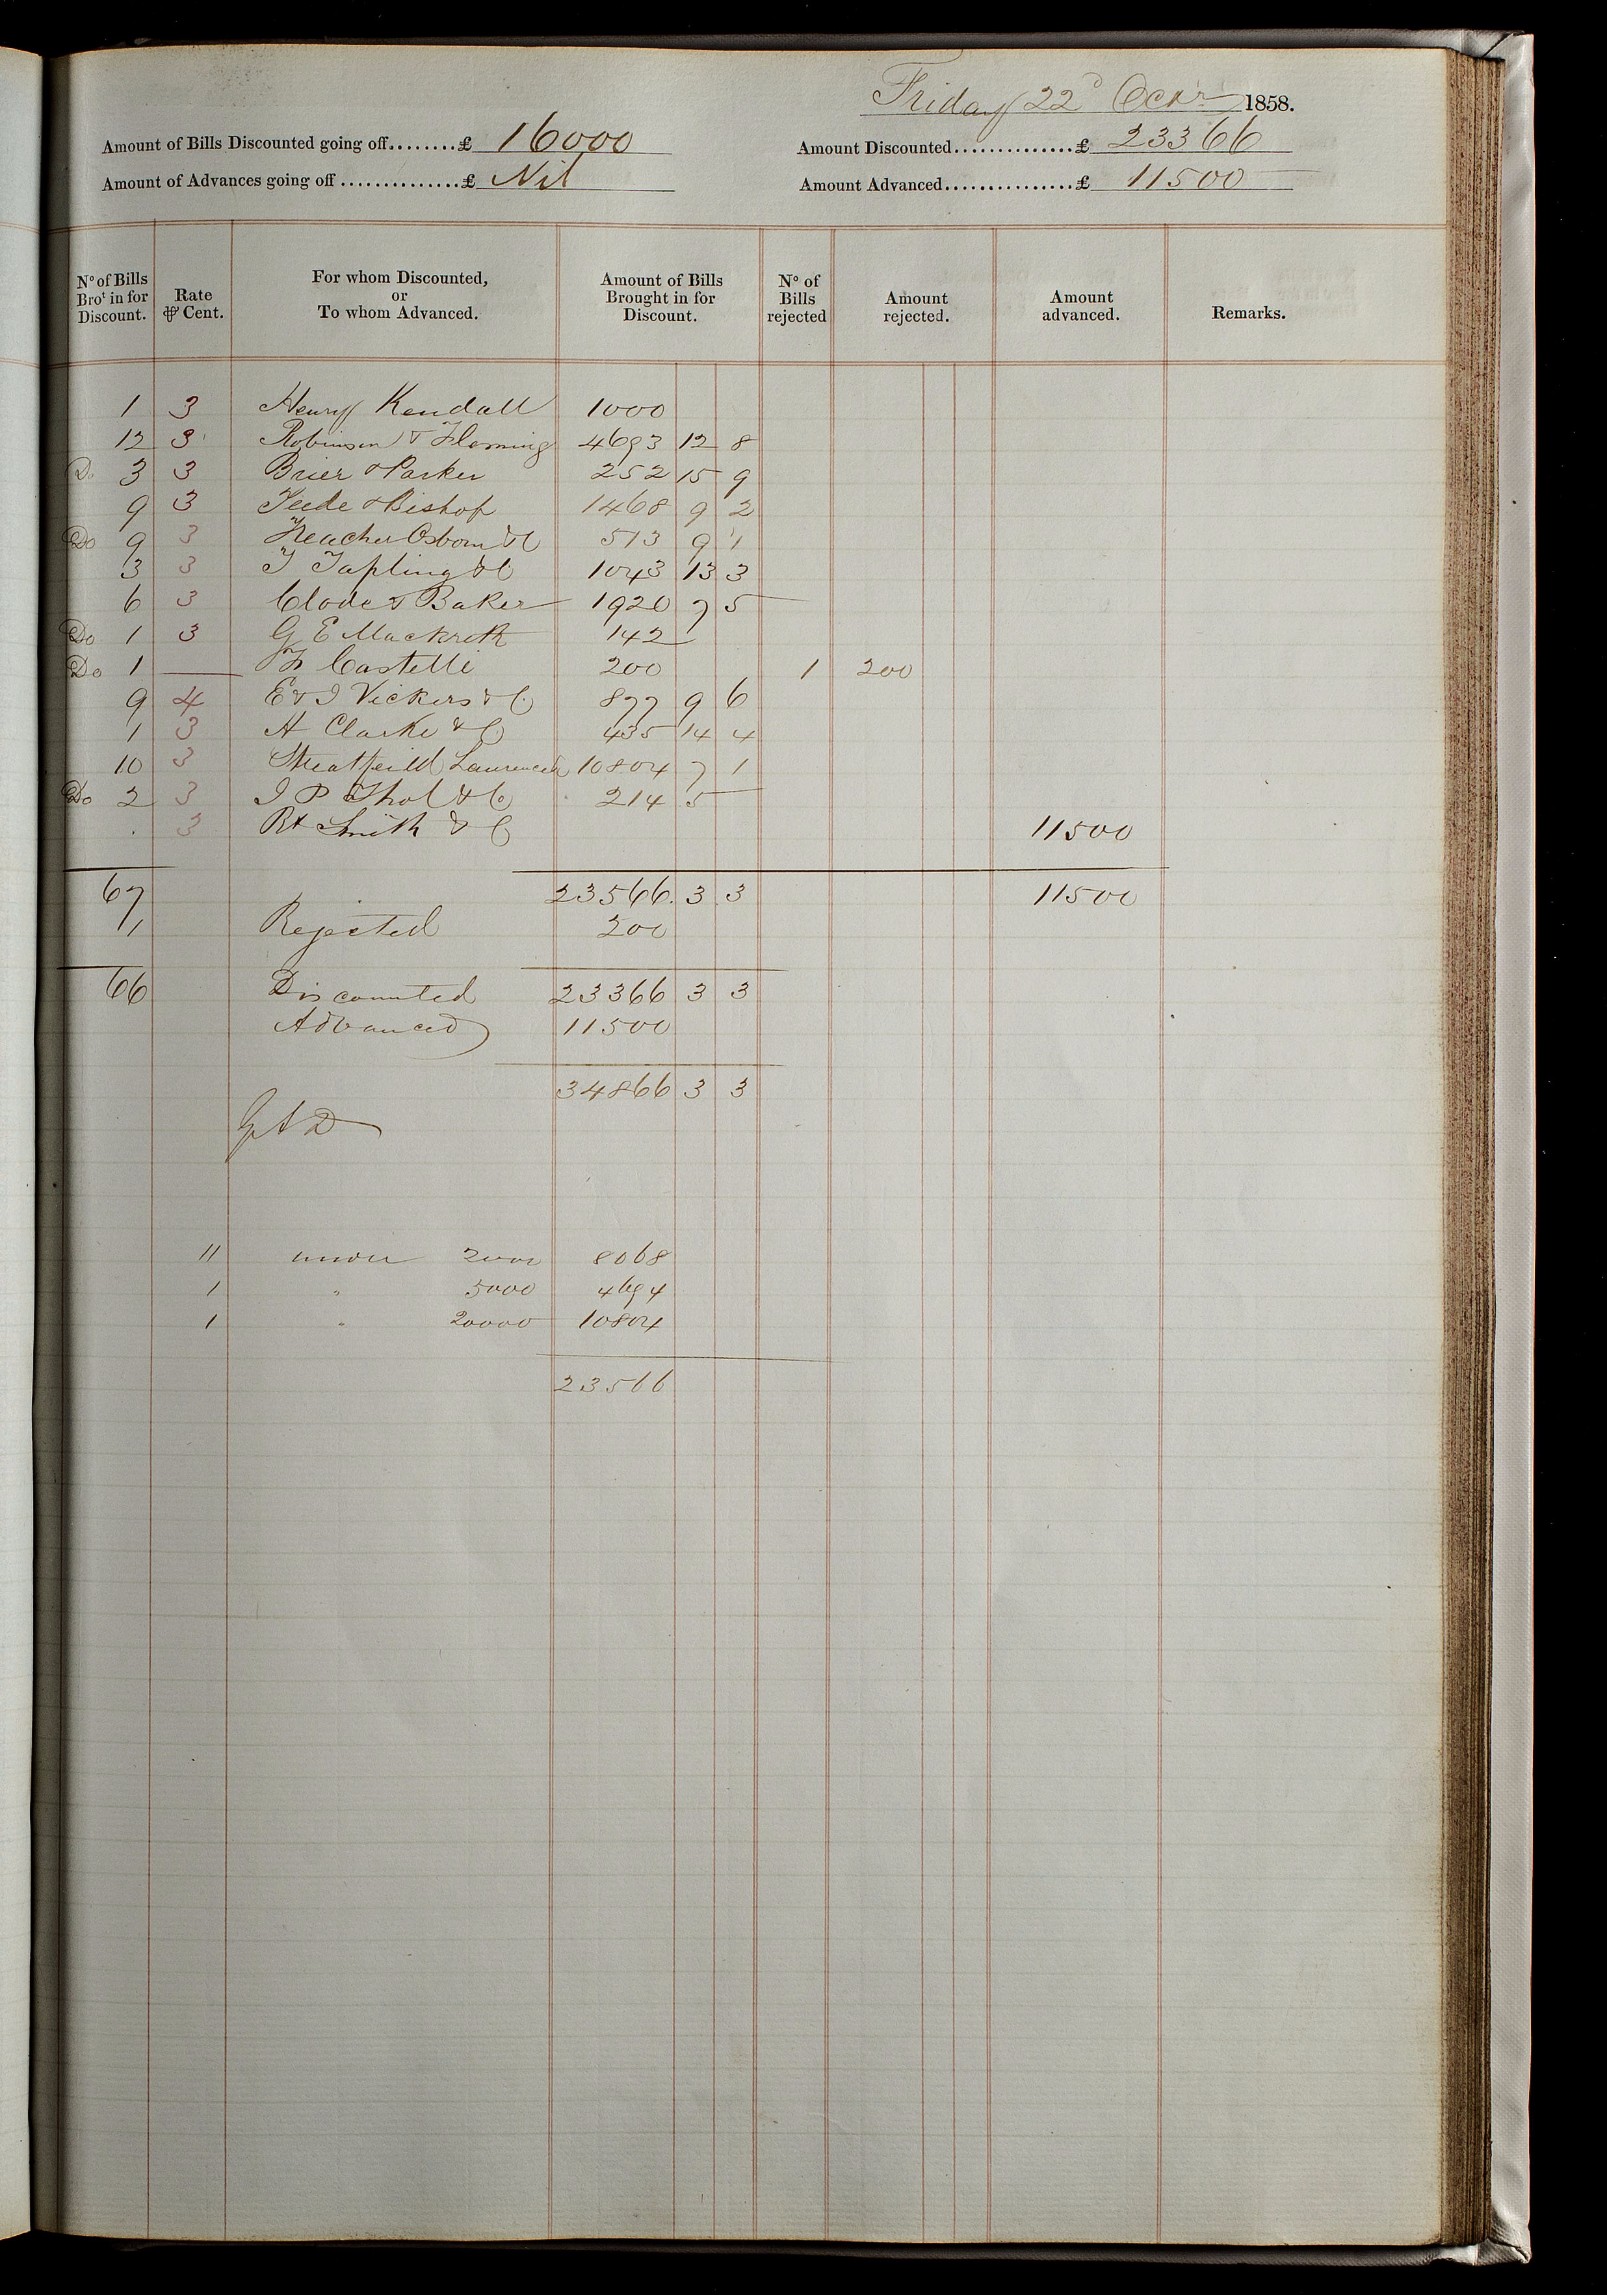 Friday 22d Octr 1858.
Amount of Bills Discounted going off........£ 16000
Amount Discounted..............£ 23366
Amount of Advances going off..............£ Nil
Amount Advanced...............£ 11500
No of Bills Brot in for Discount. Rate ⅌ Cent. For whom Discounted, or To whom Advanced. Amount of Bills Brought in for Discount. No of Bills rejected Amount rejected. Amount advanced. Remarks.
1 3 Henry Kendall 1000
12 3 Robinson & Fleming 4693 12 8
Do 3 3 Brier & Parker 252 15 9
9 3 Teede & Bishop 1468 9 2
Do 9 3 Osborn & C 513 9 1
3 3 T Tapling & C 1043 13 3
6 3 Clode & Baker 1920 7 5
Do 1 3 G E Mackreth 142
Do 1 — Castelli 200 1 200
9 4 E & J Vickers & C 877 9 6
1 3 H Clarke & C 435 14 4
10 3 Streatfeild Laurence & 10804 7 1
Do 2 3 I P Thol & C 214 5 —
3 Rt Smith & C 11500
67 23566 3 3 11500
1 Rejected 200
66 Discounted 23366 3 3
Advanced 11500
34866 3 3
11 under 2000 8068
1 " 5000 4694
1 " 20000 10804
23566